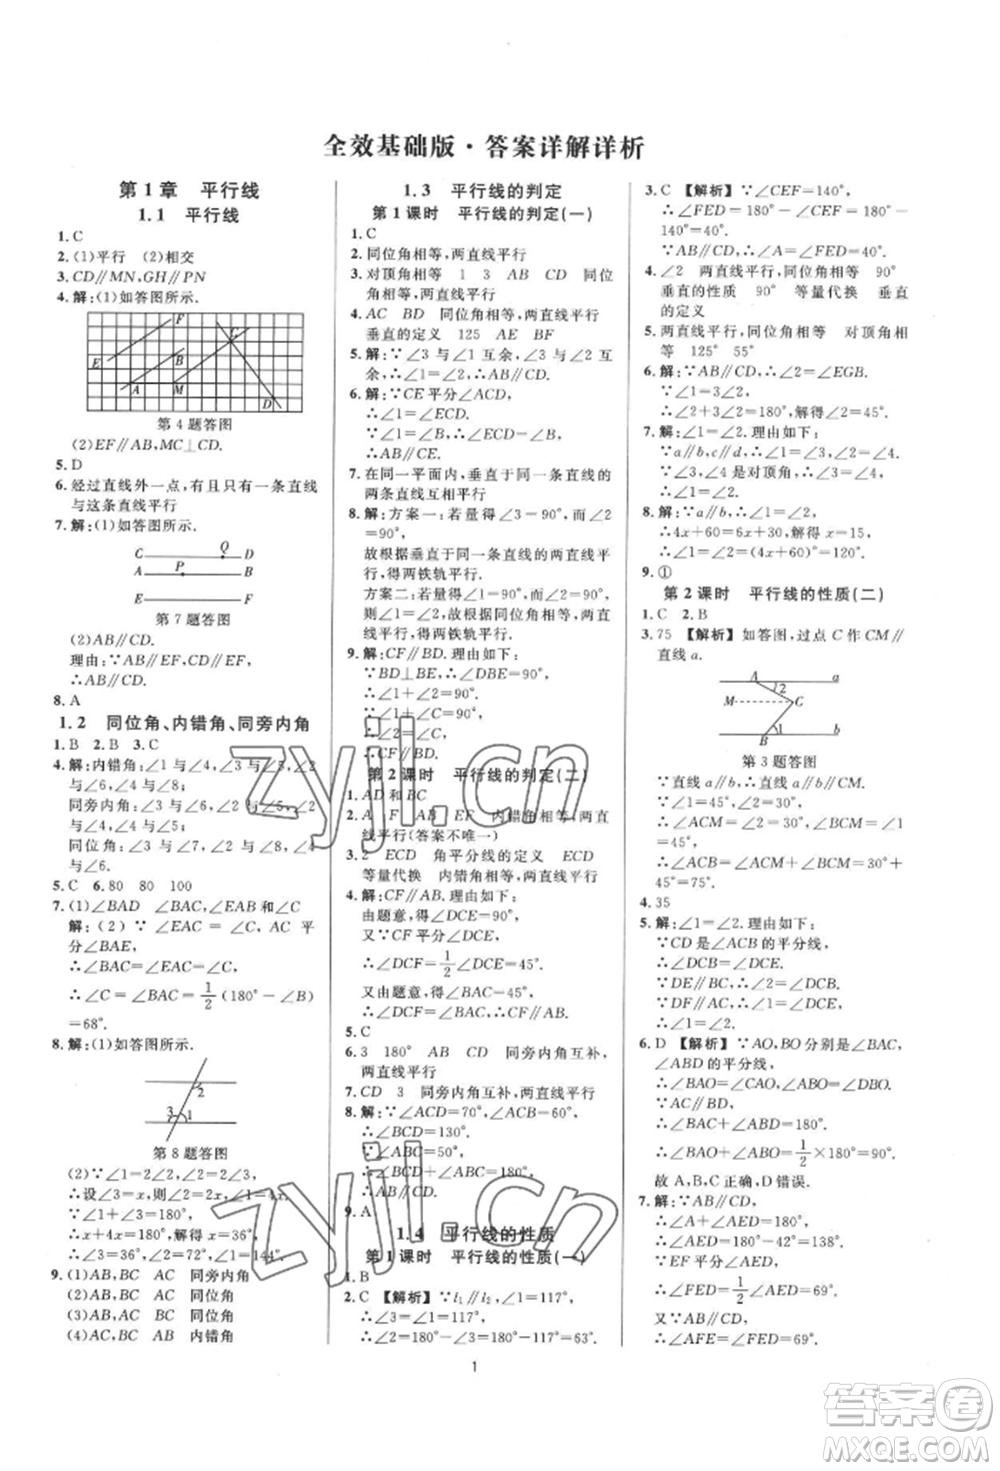 全效基础版·答案详解详析
第1章 平行线
1.1 平行线
1.C
2.(1)平行 (2)相交
3.CD∥MN,GH∥PN
4.解:(1)如答图所示.
F
C
E
B
A
M
D
第4题答图
(2)EF∥AB,MC⊥CD.
5.D
6.经过直线外一点,有一条而且只有一条直线
与这条直线平行
7.解:(1)如答图所示.
C Q D
A P B
E F
第7题答图
(2)AB∥CD.
理由:∵AB∥EF,CD∥EF,
∴AB∥CD.
8.A
1.2 同位角、内错角、同旁内角
1.B 2.B 3.C
4.解:内错角:∠1与∠4,∠3与∠5,∠2
与∠6,∠4与∠8;
同旁内角:∠3与∠6,∠2与∠5,∠2
与∠4,∠4与∠5;
同位角:∠3与∠7,∠2与∠8,∠4
与∠6.
5.C 6.80 80 100
7.(1)∠BAD ∠BAC,∠EAB和∠C
解:(2)∵∠EAC=∠C,AC平
分∠BAE,
∴∠BAC=∠EAC=∠C,
∴∠C=∠BAC=1/2(180°-∠B)
=68°.
8.解:(1)如答图所示.
2
3
1
第8题答图
(2)∵∠1=2∠2,∠2=2∠3,
∴设∠3=x,∠2=2x,∠1=4x.
∵∠1+∠3=180°,
∴x+4x=180°,∴x=36°,
∴∠3=36°,∠2=72°,∠1=144°.
9.(1)AB,BC AC 同旁内角
(2)AB,BC AC 同位角
(3)AB,AC BC 同位角
(4)AC,BC AB 内错角
1.3 平行线的判定
第1课时 平行线的判定(一)
1.C
2.同位角相等,两直线平行
3.对顶角相等 1 3 AB CD 同位
角相等,两直线平行
4.AC BD 同位角相等,两直线平行
垂直的定义 125 AE BF
5.解:∵∠3与∠1互余,∠3与∠2互
余,∴∠1=∠2,∴AB∥CD.
6.解:∵CE平分∠ACD,
∴∠1=∠ECD.
∵∠1=∠2,∴∠2=∠ECD,
∴AB∥CE.
7.在同一平面内,垂直于同一条直线的
两条直线互相平行
8.解:方案一:若量得∠3=90°,而∠2
=90°,
故根据垂直于同一条直线的两直线平
行,得两铁轨平行.
方案二:若量得∠5=90°,而∠2=
90°,故根据同位角相等,两直线平
行,得两铁轨平行.
9.解:CF∥BD.理由如下:
∵BD⊥BE,∴∠DBE=90°,
∴∠1+∠2=90°.
∵∠1+∠C=90°,
∴∠2=∠C,
∴CF∥BD.
第2课时 平行线的判定(二)
1.AD和BC
2.AF AB EF 内错角相等,两直
线平行(答案不唯一)
3.2 ECD 角平分线的定义 ECD
等量代换 内错角相等,两直线平行
4.解:CF∥AB.理由如下:
由题意,得∠DCE=90°,
又∵CF平分∠DCE,
∴∠DCF=1/2∠DCE=45°.
又由题意,得∠BAC=45°,
∴∠DCF=∠BAC,∴CF∥AB.
5.C
6.3 180° AB CD 同旁内角互补,
两直线平行
7.CD 3 同旁内角互补,两直线平行
8.解:∵∠ACD=70°,∠ACB=60°,
∴∠BCD=130°.
∵∠ABC=50°,
∴∠BCD+∠ABC=180°,
∴AB∥CD.
9.A
1.4 平行线的性质
第1课时 平行线的性质(一)
1.B
2.C 【解析】∵l₁∥l₂,∠1=117°,
∴∠3=∠1=117°,
∴∠2=180°-∠3=180°-117°=63°.
3.C 【解析】∵∠CEF=140°,
∴∠FED=180°-∠CEF=180°-
140°=40°.
∵AB∥CD,∴∠A=∠FED=40°.
4.∠2 两直线平行,同位角相等 90°
垂直的性质 90° 等量代换 垂直
的定义
5.两直线平行,同位角相等 对顶角相
等 125° 55°
6.解:∵AB∥CD,∴∠2=∠EGB.
∵∠1=3∠2,
∴∠2+3∠2=180°,解得∠2=45°.
7.解:∠1=∠2.理由如下:
∵a∥b,c∥d,∴∠1=∠3=∠4.
∵∠2与∠4是对顶角,∴∠2=∠4,
∴∠1=∠2.
8.解:∵a∥b,∴∠1=∠2,
∴4x+60=6x+30,解得x=15,
∴∠1=∠2=(4x+60)°=120°.
9.①
第2课时 平行线的性质(二)
1.C 2.B
3.75 【解析】如答图,过点C作CM∥
直线a.
A a
2
M C
1
B b
第3题答图
∵直线a∥b,∴直线a∥b∥CM.
∵∠1=45°,∠2=30°,
∴∠ACM=∠2=30°,∠BCM=∠1
=45°,
∴∠ACB=∠ACM+∠BCM=30°+
45°=75°.
4.35
5.解:∠1=∠2.理由如下:
∵CD是∠ACB的平分线,
∴∠DCB=∠DCE.
∵DE∥BC,∴∠DCB=∠1,
∴∠DCE=∠1.
∵DC∥EF,∴∠2=∠DCE,
∴∠1=∠2.
6.D 【解析】∵AO,BO分别是∠BAC,
∠ABD的平分线,
∴∠BAO=∠CAO,∠ABO=∠DBO.
∵AC∥BD,
∴∠BAC+∠ABD=180°,
∴∠BAO+∠ABO=1/2×180°=90°.
故A,B,C正确,D错误.
7.解:∵AB∥CD,
∴∠A+∠AED=180°.
∵∠A=42°,∴∠AED=138°.
∵EF平分∠AED,
∴∠FED=1/2∠AED=69°.
又∵AB∥CD,
∴∠AFE=∠FED=69°.
1
zyjl.cn
zyjl.cn
答案圈
MXQE.COM